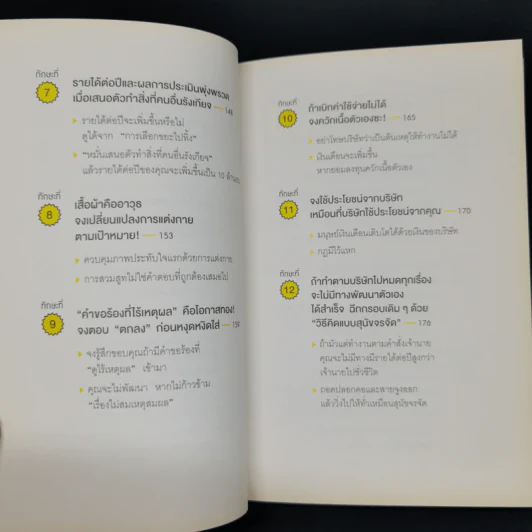 ทักษะที่
7
รายได้ต่อปีและผลการประเมินพุ่งพรวด
เมื่อเสนอตัวทำสิ่งที่คนอื่นรังเกียจ
รายได้ต่อปีจะเพิ่มขึ้นหรือไม่
ดูได้จาก "การเลือกขยะไปทิ้ง"
"หมั่นเสนอตัวทำสิ่งที่คนอื่นรังเกียจ"
แล้วรายได้ต่อปีของคุณจะเพิ่มขึ้นเป็น 10 ล้าน
ทักษะที่
8
เสื้อผ้าคืออาวุธ
จงเปลี่ยนแปลงการแต่งกาย
ตามเป้าหมาย! 153
ควบคุมภาพประทับใจแรกด้วยการแต่งกาย
การสวมสูทไม่ใช่คำตอบที่ถูกต้องเสมอไป
ทักษะที่
9
"คำขอร้องที่ไร้เหตุผล" คือโอกาสทอง!
จงตอบ "ตกลง" ก่อนหงุดหงิดใส่
จงรู้สึกขอบคุณถ้ามีคำขอร้องที่
"ดูไร้เหตุผล" เข้ามา
คุณจะไม่พัฒนา หากไม่ก้าวข้าม
"เรื่องไม่สมเหตุสมผล"
ทักษะที่
10
ถ้าเบิกค่าใช้จ่ายไม่ได้
จงควักเนื้อตัวเองซะ! 165
อย่าโทษบริษัทว่าเป็นต้นเหตุให้ทำงานไม่ได้
เงินเดือนจะเพิ่มขึ้น
หากยอมลงทุนควักเนื้อตัวเอง
ทักษะที่
11
จงใช้ประโยชน์จากบริษัท
เหมือนที่บริษัทใช้ประโยชน์จากคุณ 170
มนุษย์เงินเดือนเติบโตได้ด้วยเงินของบริษัท
กฎมีไว้แหก
ทักษะที่
12
ถ้าทำตามบริษัทไปหมดทุกเรื่อง
จะไม่มีทางพัฒนาตัวเอง
ได้สำเร็จ ฉีกกรอบเดิม ๆ ด้วย
"วิธีคิดแบบสุนัขจรจัด" 176
ถ้ามัวแต่ทำงานตามคำสั่งเจ้านาย
คุณจะไม่มีทางมีรายได้ต่อปีสูงกว่า
เจ้านายไปชั่วชีวิต
ถอดปลอกคอและสายจูงออก
แล้ววิ่งไปให้ทั่วเหมือนสุนัขจรจัด